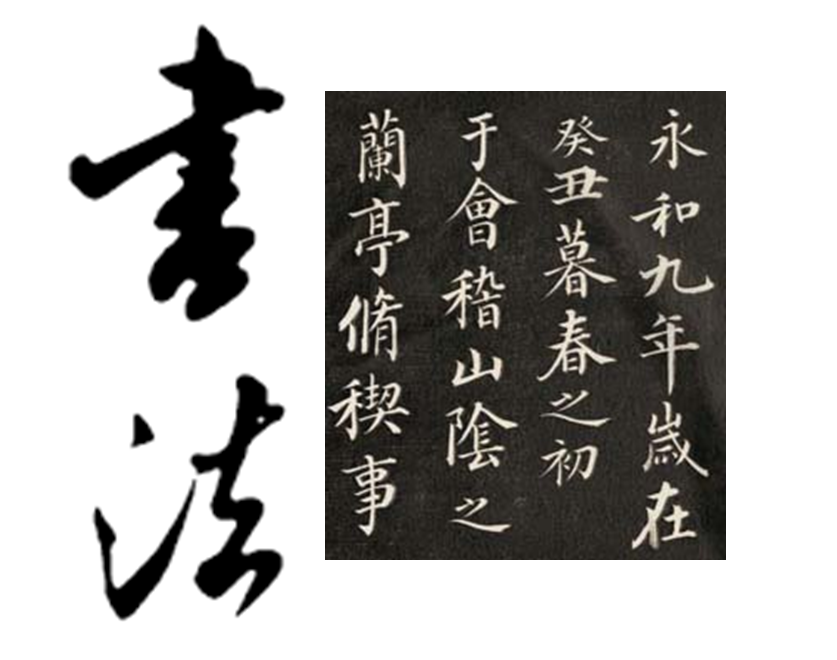 書法
永和九年歲在
癸丑暮春之初
于會稽山陰之
蘭亭脩稧事